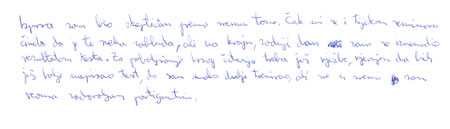 Isprva sam bio skeptičan prema svemu tome. Čak mi se i tijekom seminara
činilo da je to neka zabluda, ali na kraju, zadnji dan sam se iznenadio
rezultatom testa. Za poboljšanje brzog čitanja treba još vježbe, vjerujem da bih
još bolje napisao test, da sam malo dulje trenirao, ali ne u svemu sam
veoma zadovoljan postignutim.